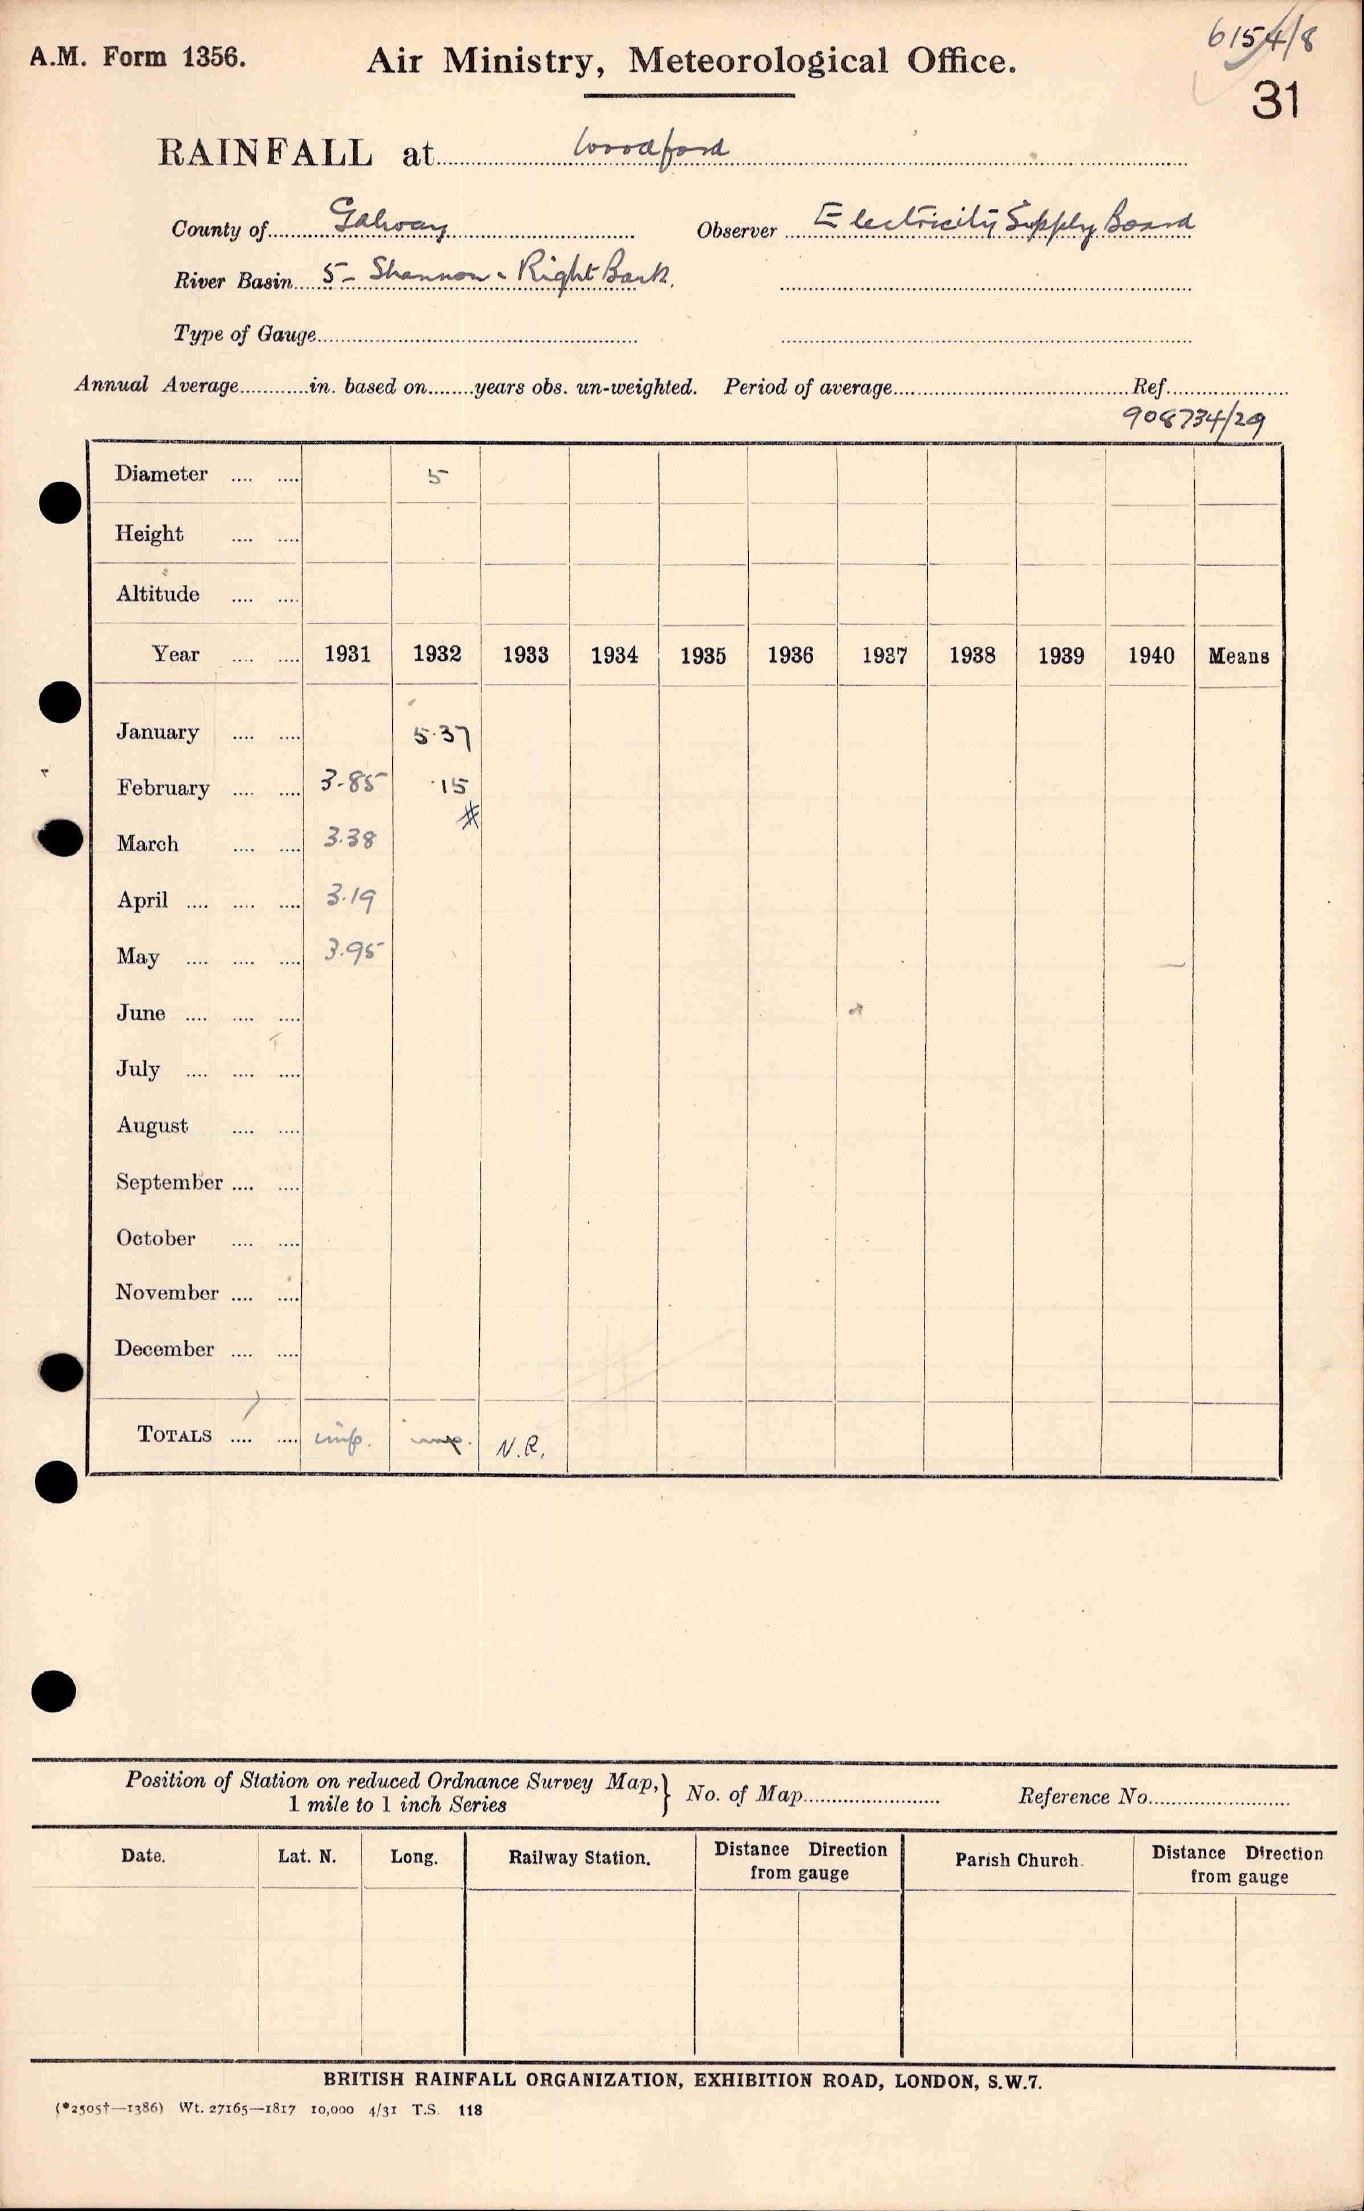 A.M. Form 1356.
Air Ministry, Meteorological Office.
6154/8
31
RAINFALL at Woodford
County of Galway Observer Electricity Supply Board
River Basin 5 - Shannon - Right Bank.
Type of Gauge
Annual Average in. based on years obs. un-weighted. Period of average Ref.
908734/29
Diameter .... .... 5
Height .... ....
Altitude .... ....
Year .... .... 1931 1932 1933 1934 1935 1936 1937 1938 1939 1940 Means
January .... .... 5.37
February .... .... 3.85 .15
#
March .... .... 3.38
April .... .... .... 3.19
May .... .... .... 3.95
June .... .... ....
July .... .... ....
August .... ....
September .... ....
October .... ....
November .... ....
December .... ....
TOTALS .... .... imp. imp. N.R.
Position of Station on reduced Ordnance Survey Map, } No. of Map Reference No.
1 mile to 1 inch Series
Date. Lat. N. Long. Railway Station. Distance Direction from gauge Parish Church. Distance Direction from gauge
BRITISH RAINFALL ORGANIZATION, EXHIBITION ROAD, LONDON, S.W.7.
(*2505†—1386) Wt. 27165—1817 10,000 4/31 T.S. 118